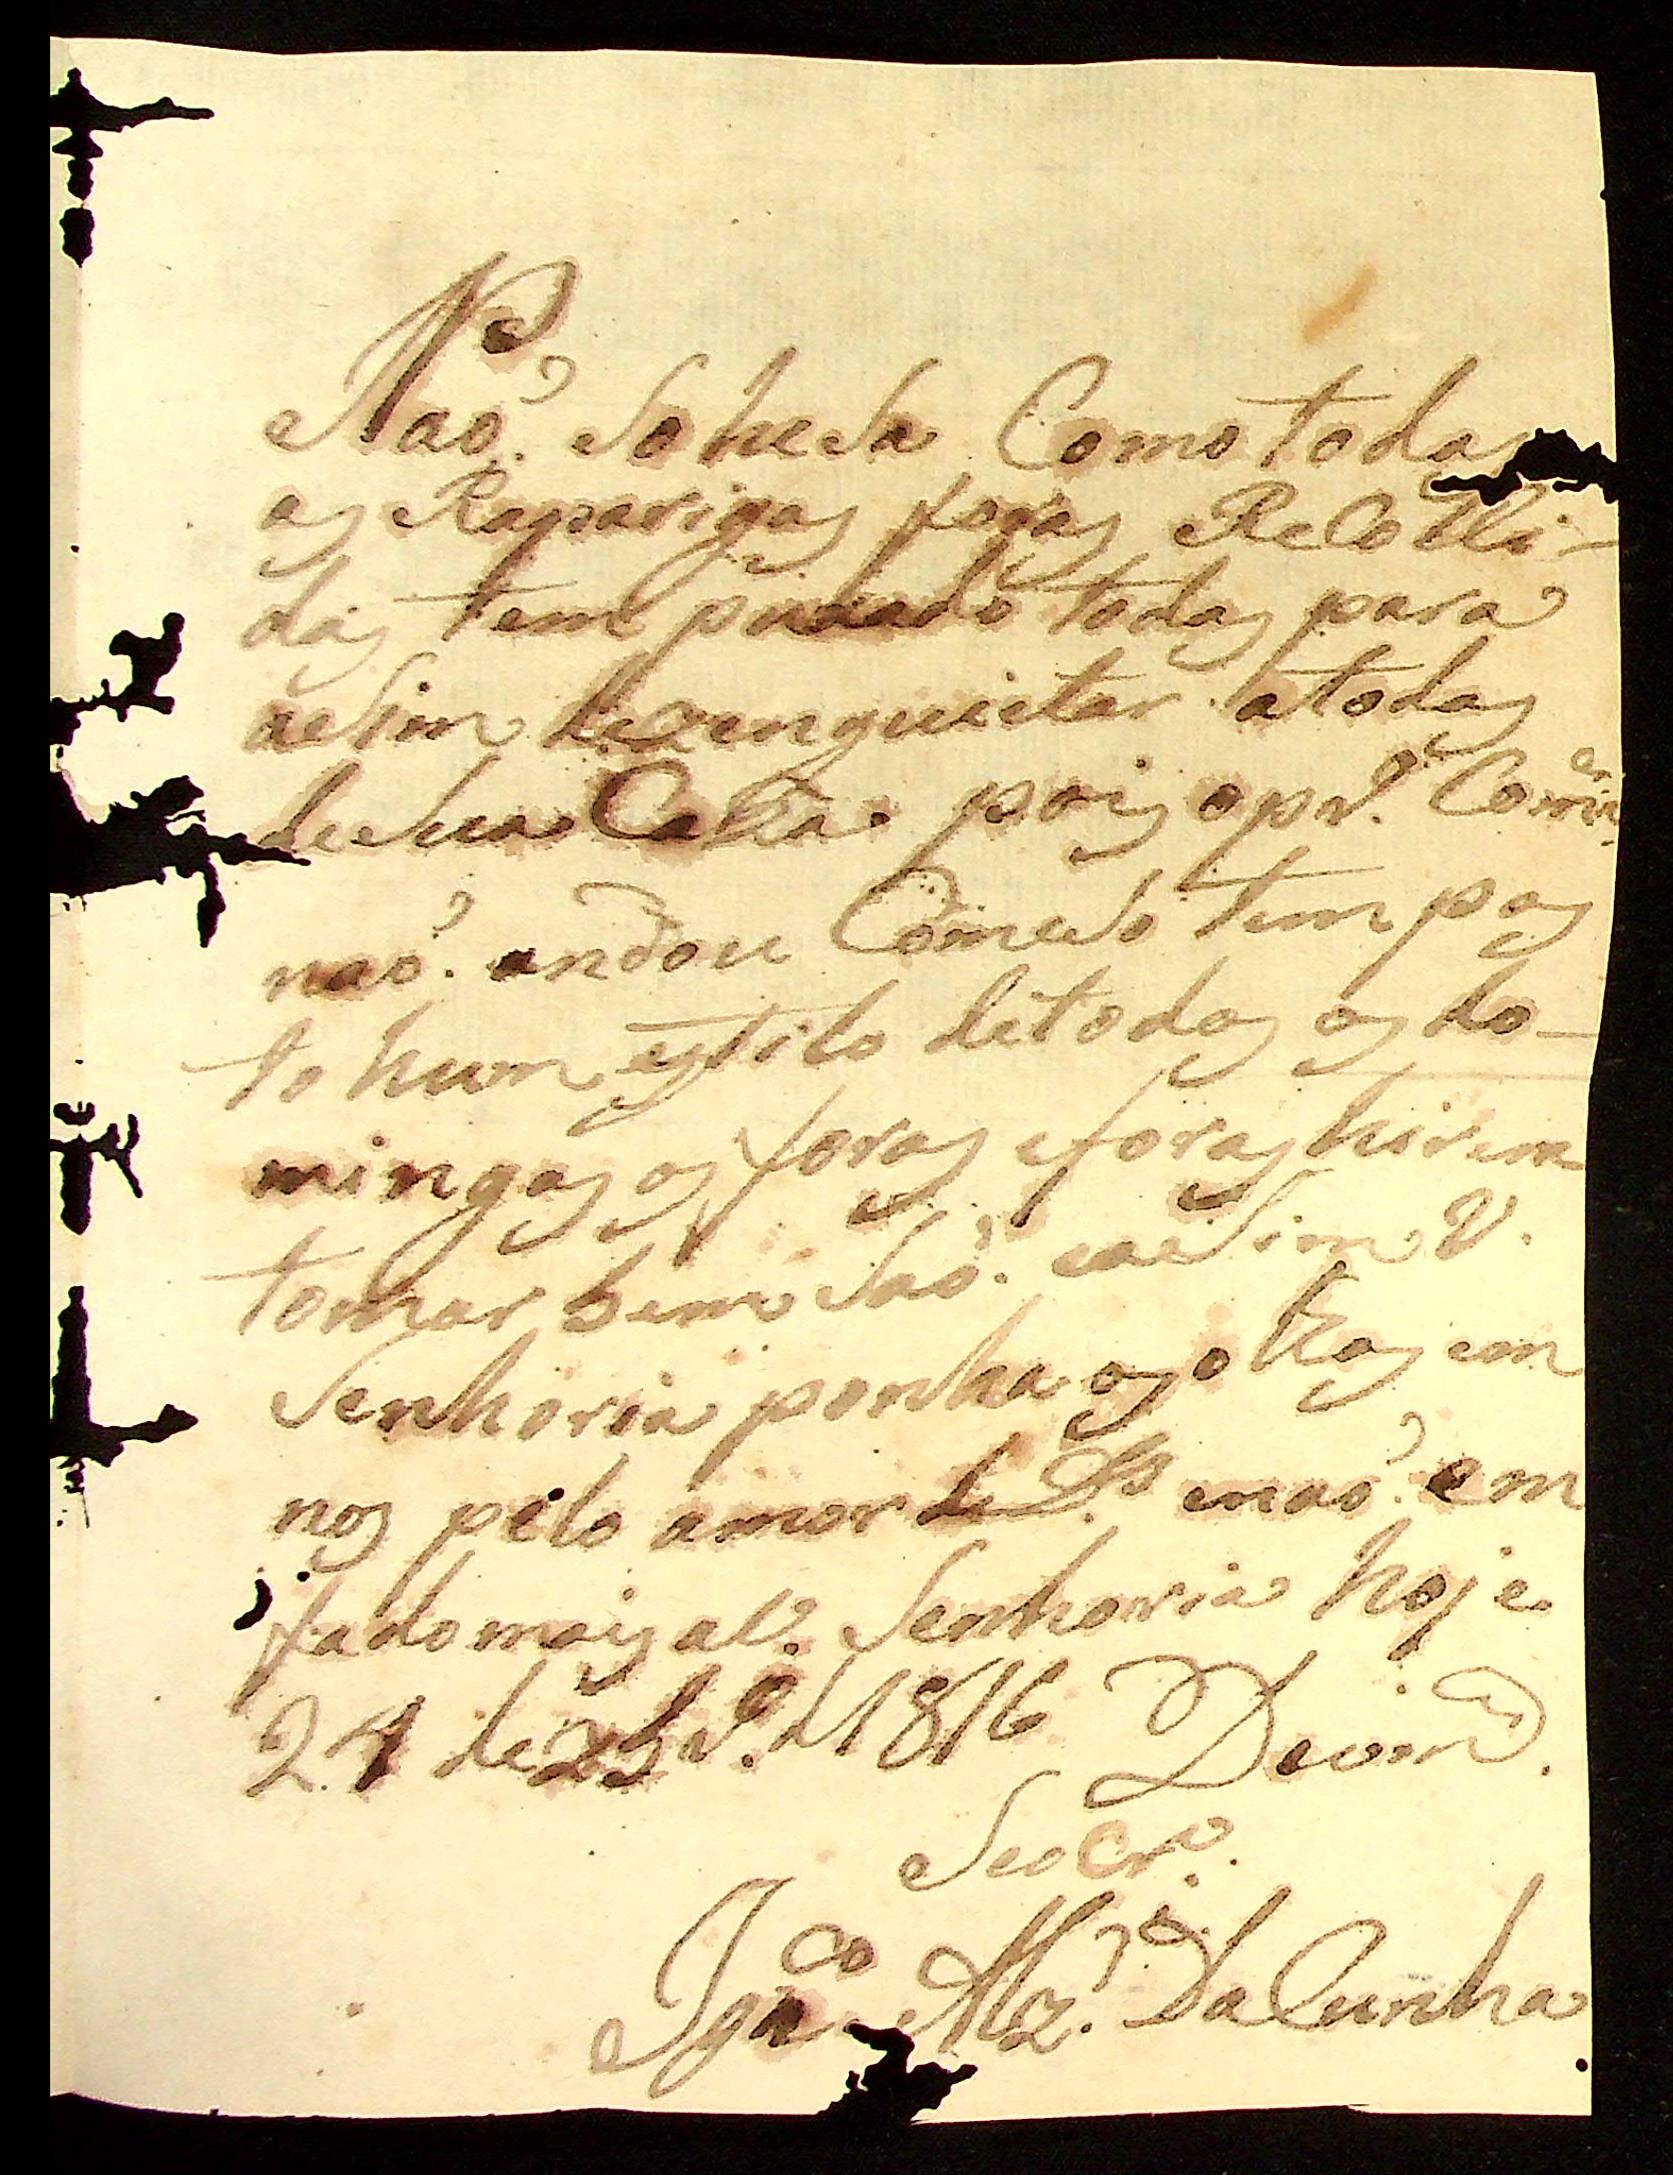 Naõ so hesa Como todas
as Raparigas foras Recolhi-
das tem puxado todas para
asim dezenquietar atodas
desua Caza pois o pr.
naõ andou Comedo tem pos
to hum estilo detodos os do-
mingos os foros eforas hirem
tomar bemsaõ. easim V.
Senhoria ponha os olhos em
nos pelo amor de Ds enaõ em
fado mais aV. Senhoria hoje
24 de d 1816 De vm
Seo Cro.
Igco Alz. Da Cunha